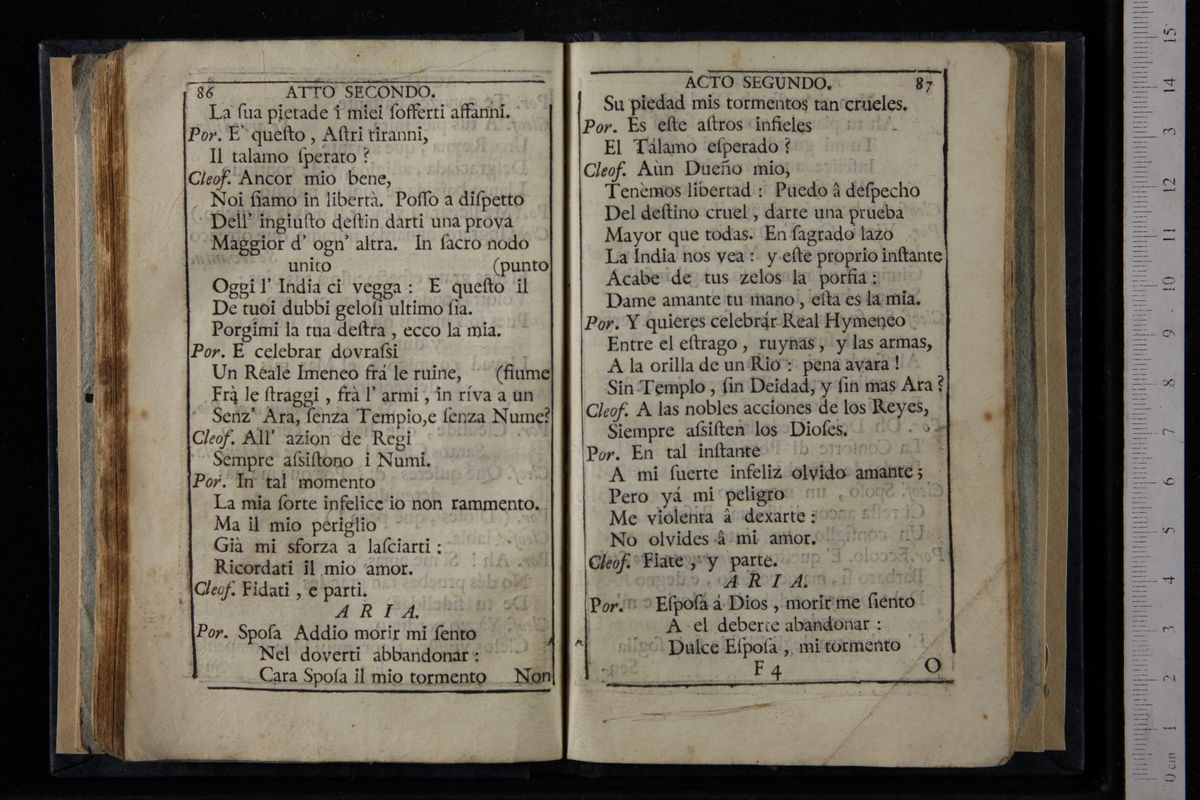 86 ATTO SECONDO.
La ſua pietade i miei ſofferti affanni.
Por. E' queſto , Aſtri tiranni,
Il talamo ſperato ?
Cleof. Ancor mio bene,
Noi ſiamo in libertà. Poſſo a diſpetto
Dell' ingiuſto deſtin darti una prova
Maggior d' ogn' altra. In ſacro nodo
unito (punto
Oggi l' India ci vegga : E queſto il
De tuoi dubbi geloſi ultimo ſia.
Porgimi la tua deſtra , ecco la mia.
Por. E celebrar dovraſsi
Un Reale Imeneo frà le ruine, (fiume
Frà le ſtraggi , frà l' armi , in ríva a un
Senz' Ara, ſenza Tempio,e ſenza Nume?
Cleof. All' azion de Regi
Sempre aſsiſtono i Numi.
Por. In tal momento
La mia ſorte infelice io non rammento.
Ma il mio periglio
Già mi sforza a laſciarti :
Ricordati il mio amor.
Cleof. Fidati , e parti.
A R I A.
Por. Spoſa Addio morir mi ſento
Nel doverti abbandonar :
Cara Spoſa il mio tormento Non
ACTO SEGUNDO. 87
Su piedad mis tormentos tan crueles.
Por. Es eſte aſtros infieles
El Tálamo eſperado ?
Cleof. Aùn Dueño mio,
Tenèmos libertad : Puedo â deſpecho
Del deſtino cruel , darte una prueba
Mayor que todas. En ſagrado lazo
La India nos vea : y eſte proprio inſtante
Acabe de tus zelos la porfia :
Dame amante tu mano , eſta es la mia.
Por. Y quieres celebrár Real Hymeneo
Entre el eſtrago , ruynas , y las armas,
A la orilla de un Rio : pena avara !
Sin Templo , ſin Deidad, y ſin mas Ara ?
Cleof. A las nobles acciones de los Reyes,
Siempre aſsiſten los Dioſes.
Por. En tal inſtante
A mi ſuerte infeliz olvido amante ;
Pero yá mi peligro
Me violenta â dexarte :
No olvides â mi amor.
Cleof. Fiate , y parte.
A R I A.
Por. Eſpoſa á Dios , morir me ſiento
A el deberte abandonar :
Dulce Eſpoſa , mi tormento
F 4 O
15
14
13
12
11
10
9
8
7
6
5
4
3
2
1
0 cm